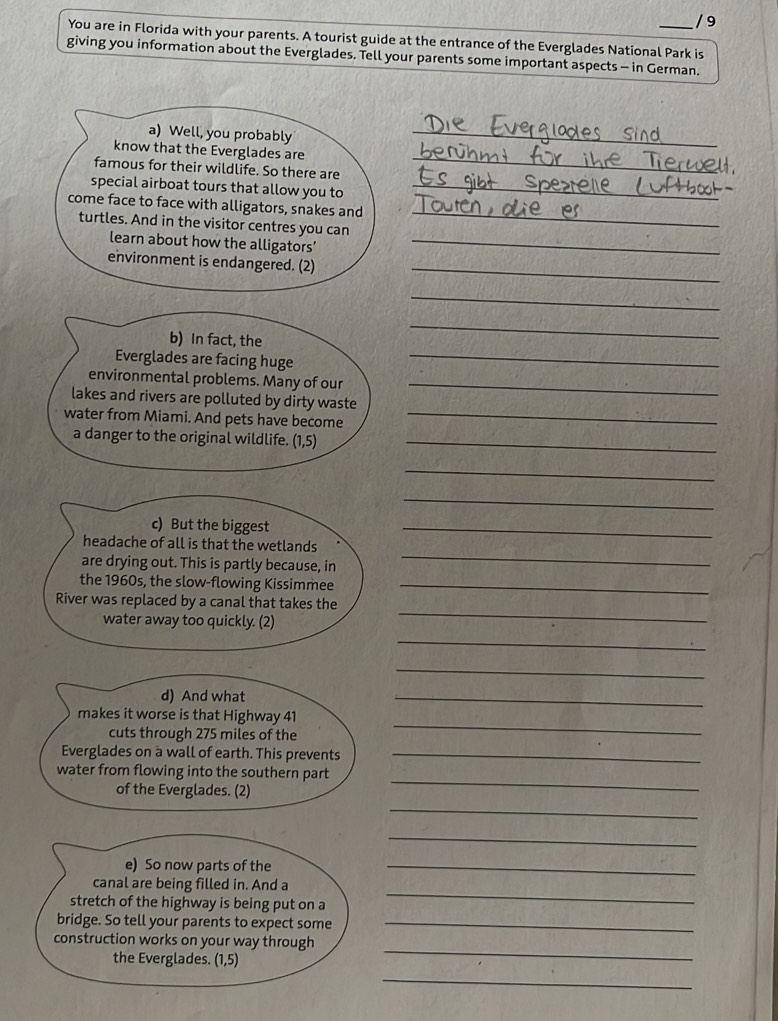 ___ / 9
You are in Florida with your parents. A tourist guide at the entrance of the Everglades National Park is
giving you information about the Everglades. Tell your parents some important aspects – in German.
a) Well, you probably
know that the Everglades are
famous for their wildlife. So there are
special airboat tours that allow you to
come face to face with alligators, snakes and
turtles. And in the visitor centres you can
learn about how the alligators’
environment is endangered. (2)
Die Everglades sind
berühmt für ihre Tierwelt.
Es gibt spezielle Luftboot-
Touren, die es
b) In fact, the
Everglades are facing huge
environmental problems. Many of our
lakes and rivers are polluted by dirty waste
water from Miami. And pets have become
a danger to the original wildlife. (1,5)
c) But the biggest
headache of all is that the wetlands
are drying out. This is partly because, in
the 1960s, the slow-flowing Kissimmee
River was replaced by a canal that takes the
water away too quickly. (2)
d) And what
makes it worse is that Highway 41
cuts through 275 miles of the
Everglades on a wall of earth. This prevents
water from flowing into the southern part
of the Everglades. (2)
e) So now parts of the
canal are being filled in. And a
stretch of the highway is being put on a
bridge. So tell your parents to expect some
construction works on your way through
the Everglades. (1,5)